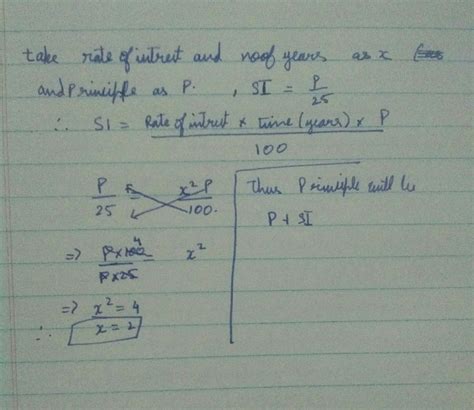 take rate of intrest and no of years as x
and Principle as P. , SI = P/25
∴ SI = Rate of intrest × time (years) × P / 100
P/25 = x²P/100
⇒ P×100 4 / P×25 x²
⇒ x² = 4
∴ x = 2
Thus Principle will be
P + SI